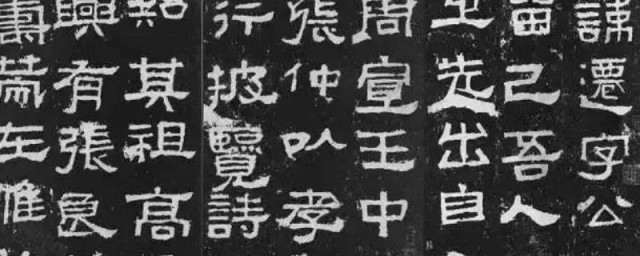 諱遷字公
留己吾人
之先出自
周宣王中
張仲以孝
行披覽詩
知其祖高
興有張良
籌策在帷